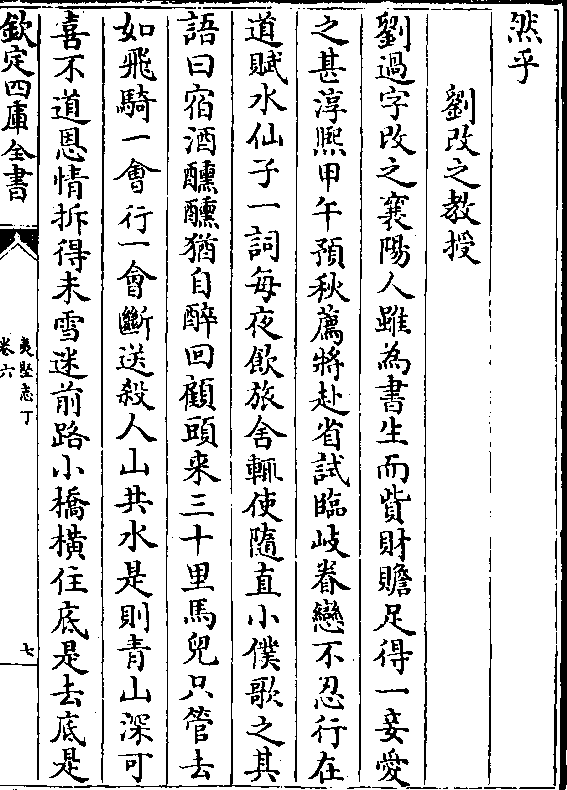 然乎
劉改之教授
劉過字改之襄陽人雖為書生而貲財贍足得一妾愛
之甚淳熙甲午預秋薦將赴省試臨岐眷戀不忍行在
道賦水仙子一詞每夜飲旅舍輒使隨直小僕歌之其
語曰宿酒醺醺猶自醉回顧頭來三十里馬兒只管去
如飛騎一會行一會斷送殺人山共水是則青山深可
喜不道恩情拆得未雪迷前路小橋横住底是去底是
欽定四庫全書
夷堅志丁
卷六
七